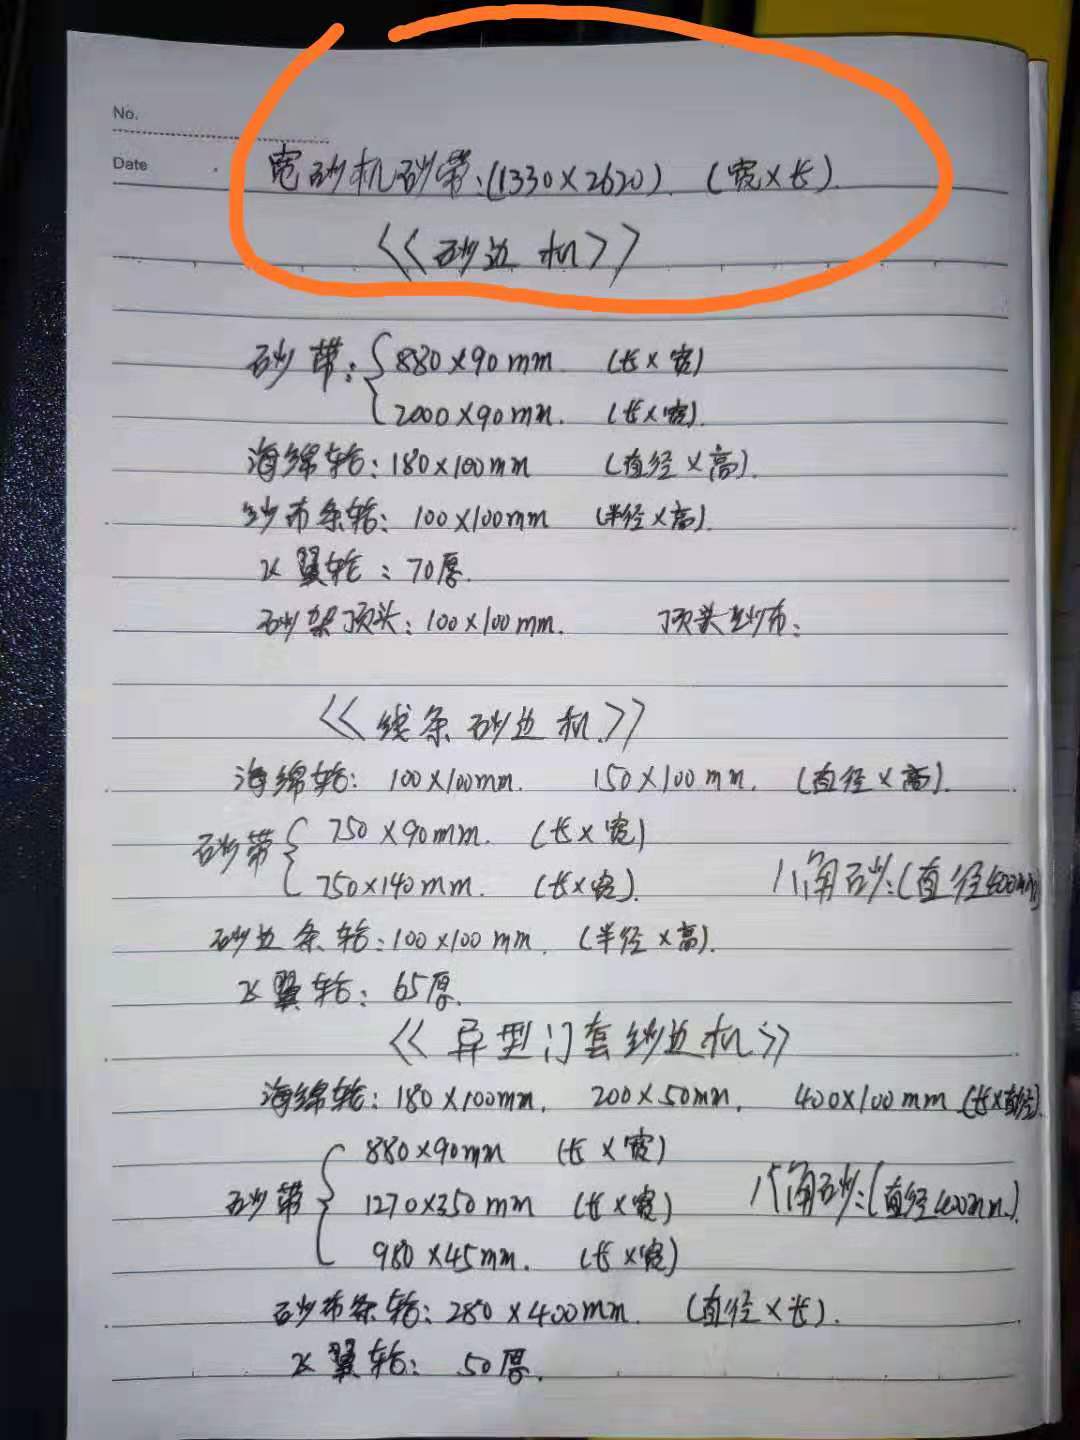 No.
Date
宽砂机砂带:(1330×2620). (宽×长).
<<砂边机>>
砂带:{880×90mm (长×宽)
2000×90mm. (长×宽).
海绵轮:180×100mm (直径×高).
纱布条轮: 100×100mm (半径×高).
飞翼轮:70厚.
砂架顶头:100×100mm. 顶头纱布:
<<线条砂边机>>
海绵轮: 100×100mm. 150×100mm. (直径×高).
砂带{750×90mm. (长×宽)
750×140mm. (长×宽). 八角砂:(直径400mm)
砂边条轮:100×100mm. (半径×高).
飞翼轮: 65厚.
<<异型门套纱边机>>
海绵轮:180×100mm. 200×50mm. 400×100mm (长×直径).
880×90mm (长×宽)
砂带{1270×350mm (长×宽) 八角砂:(直径400mm.)
980×45mm. (长×宽)
砂布条轮:280×400mm. (直径×长).
飞翼轮: 50厚.